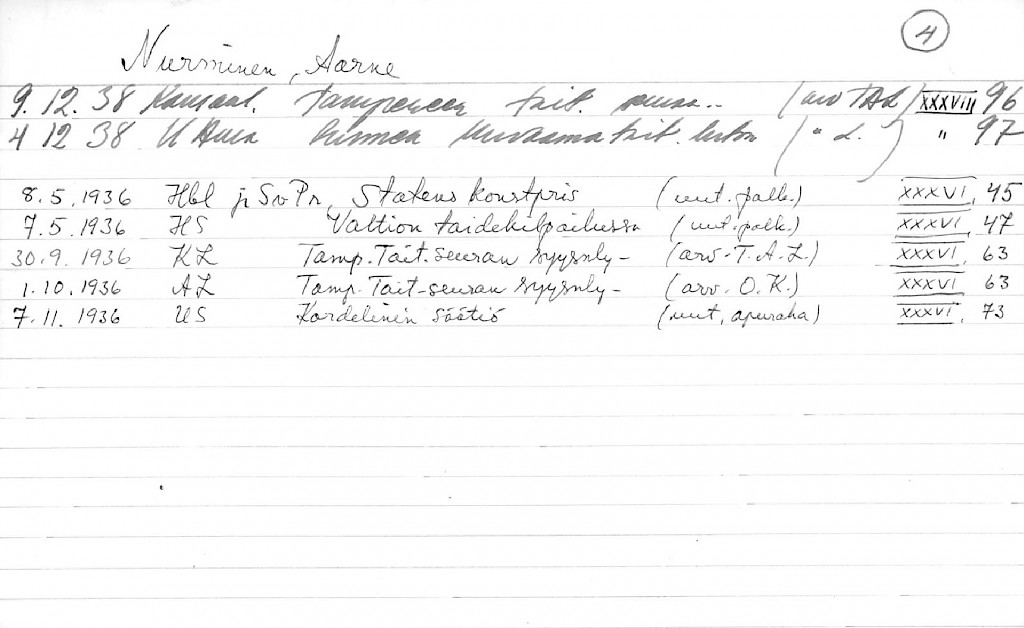 4
Nurminen, Aarne
9.12.38 Kansanl. Tampereen tait. seura.. (arv TAL) XXXVIII 96
4 12 38 U Aura tait. (" L.) " 97
8.5.1936 Hbl ja Sv Pr, Statens konstpris (uut. palk.) XXXVI, 45
7.5.1936 HS Valtion taidekilpailussa (uut. palk.) XXXVI, 47
30.9.1936 KL Tamp. Tait. seuran syysnly- (arv. T.A.L.) XXXVI, 63
1.10.1936 AL Tamp. Tait-seuran syysnly- (arv. O.K.) XXXVI, 63
7.11.1936 US Kordelinin säätiö (uut, apuraha) XXXVI, 73